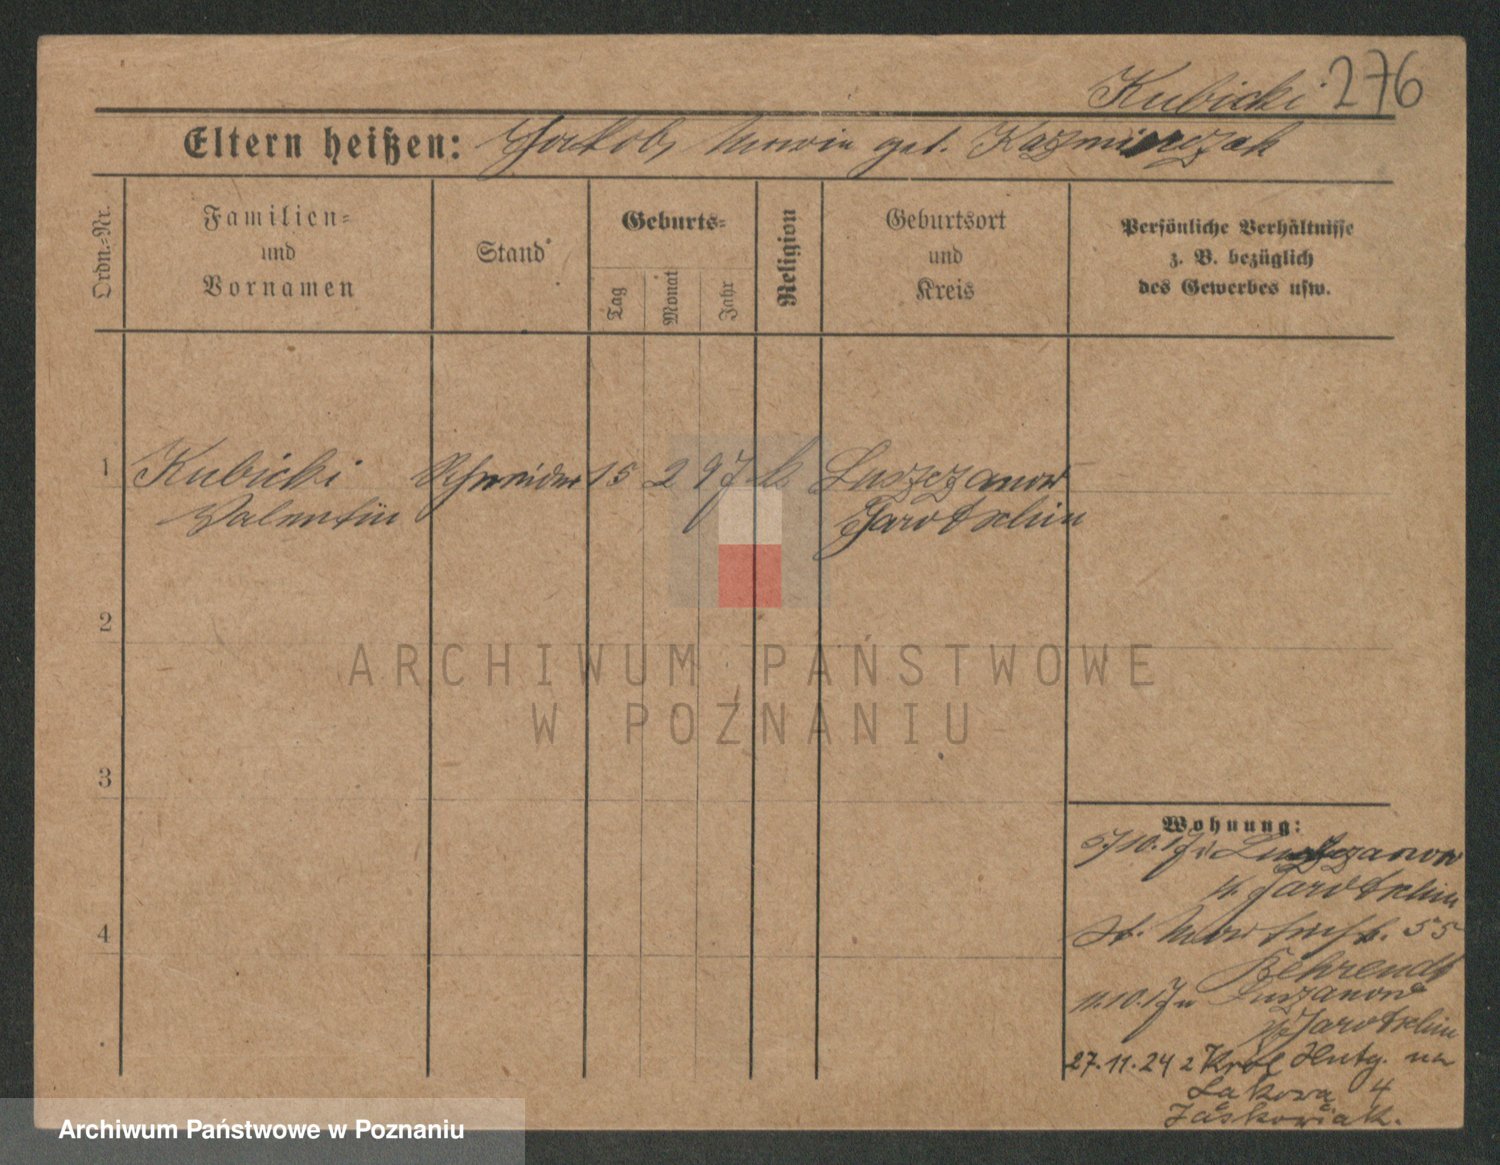 Kubicki 276
Eltern heißen: Jakob, Maria geb. Kazmierczak
Ordn.-Nr.
Familien-
und
Vornamen
Stand
Geburts-
Tag
Monat
Jahr
Religion
Geburtsort
und
Kreis
Persönliche Verhältnisse
z. B. bezüglich
des Gewerbes usw.
1 Kubicki Schneider 15 2 97 k. Luszczanow
Valentin Jarotschin
2
ARCHIWUM PAŃSTWOWE
W POZNANIU
3
Wohnung:
5/10.17 v Luszczanow
K. Jarotschin
4
St. Martinstr. 55
Behrendt
11.10.17 n Luszanow
K. Jarotschin
27.11.24 z Król Hutg. na
Łąkową 4
Jaśkowiak.
Archiwum Państwowe w Poznaniu